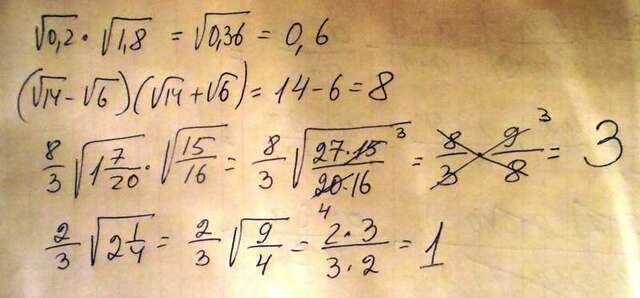 √0,2 · √1,8 = √0,36 = 0,6
(√14 - √6)(√14 + √6) = 14 - 6 = 8
8/3 √(1 7/20) · √(15/16) = 8/3 √(27·15 3/20·16 4) = 8/3 · 9 3/8 = 3
2/3 √(2 1/4) = 2/3 √(9/4) = 2·3/3·2 = 1